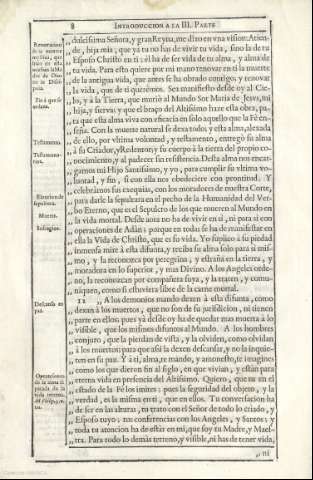 8 INTRODUCCION A LA III. PARTE
dulcissima Señora, y gran Reyna, me dixo en vna vision: Atien-
„ de, hija mia; que ya tu no has de vivir tu vida, sino la de tu
„ Esposo Christo en ti: èl ha de ser vida de tu alma, y alma de
„ tu vida. Para esto quiere por mi mano renovar en ti la muerte
„ de la antigua vida, que antes se ha obrado contigo; y renovar
„ la vida, que de ti queremos. Sea manifiesto desde oy al Cie-
„ lo, y à la Tierra, que muriò al Mundo Sor Maria de Jesus, mi
„ hija, y sierva: y que el braço del Altissimo haze esta obra, pa-
„ ra que esta alma viva con eficacia en solo aquello que la Fè en-
„ seña. Con la muerte natural se dexa todo; y esta alma, alexada
„ de ello, por vltima voluntad, y testamento, entregò su alma
„ à su Criador, y Redentor; y su cuerpo à la tierra del propio co-
„ nocimiento, y al padecer sin resistencia. Desta alma nos encar-
„ gamos mi Hijo Santissimo, y yo, para cumplir su vltima vo-
„ luntad, y fin, si con ella nos obedeciere con prontitud. Y
„ celebramos sus exequias, con los moradores de nuestra Corte,
„ para darle la sepultura en el pecho de la Humanidad del Ver-
„ bo Eterno, que es el Sepulcro de los que mueren al Mundo en
„ la vida mortal. Desde aora no ha de vivir en si, ni para si con
„ operaciones de Adàn; porque en todas se ha de manifestar en
„ ella la Vida de Christo, que es su vida. Yo suplico à su piedad
„ inmensa mire à esta difunta, y reciba su alma solo para si mis-
„ mo, y la reconozca por peregrina, y estraña en la tierra, y
„ moradora en lo superior, y mas Divino. A los Angeles orde-
„ no, la reconozcan por compañera suya, y la traten, y comu-
„ niquen, como si estuviera libre de la carne mortal.
11 „ A los demonios mando dexen à esta difunta, como
„ dexan à los muertos, que no son de su jurisdicion, ni tienen
„ parte en ellos; pues yà desde oy ha de quedar mas muerta à lo
„ visible, que los mismos difuntos al Mundo. A los hombres
„ conjuro, que la pierdan de vista, y la olviden, como olvidan
„ à los muertos; para que assi la dexen descansar, y no la inquie-
„ ten en su paz. Y à ti, alma, te mando, y amonesto, te imagines
„ como los que dieron fin al siglo, en que vivian, y estàn para
„ eterna vida en presencia del Altissimo. Quiero, que tu en el
„ estado de la Fè los imites; pues la seguridad del objeto, y la
„ verdad, es la misma en ti, que en ellos. Tu conversacion ha
„ de ser en las alturas, tu trato con el Señor de todo lo criado, y
„ Esposo tuyo: tus conferencias con los Angeles, y Santos: y
„ toda tu atencion ha de estàr en mi, que soy tu Madre, y Maes-
„ tra. Para todo lo demàs terreno, y visible, ni has de tener vida,
„ ni
Testamento.
Muerte.
Sufragios.